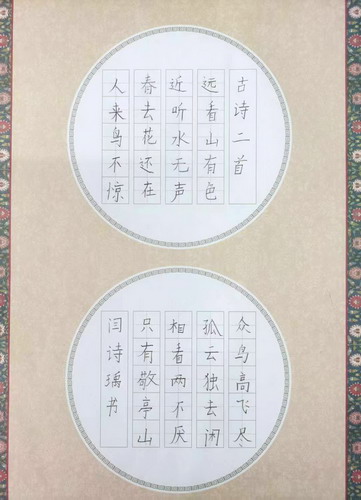 古诗二首
远看山有色
近听水无声
春去花还在
人来鸟不惊
众鸟高飞尽
孤云独去闲
相看两不厌
只有敬亭山
闫诗瑀书